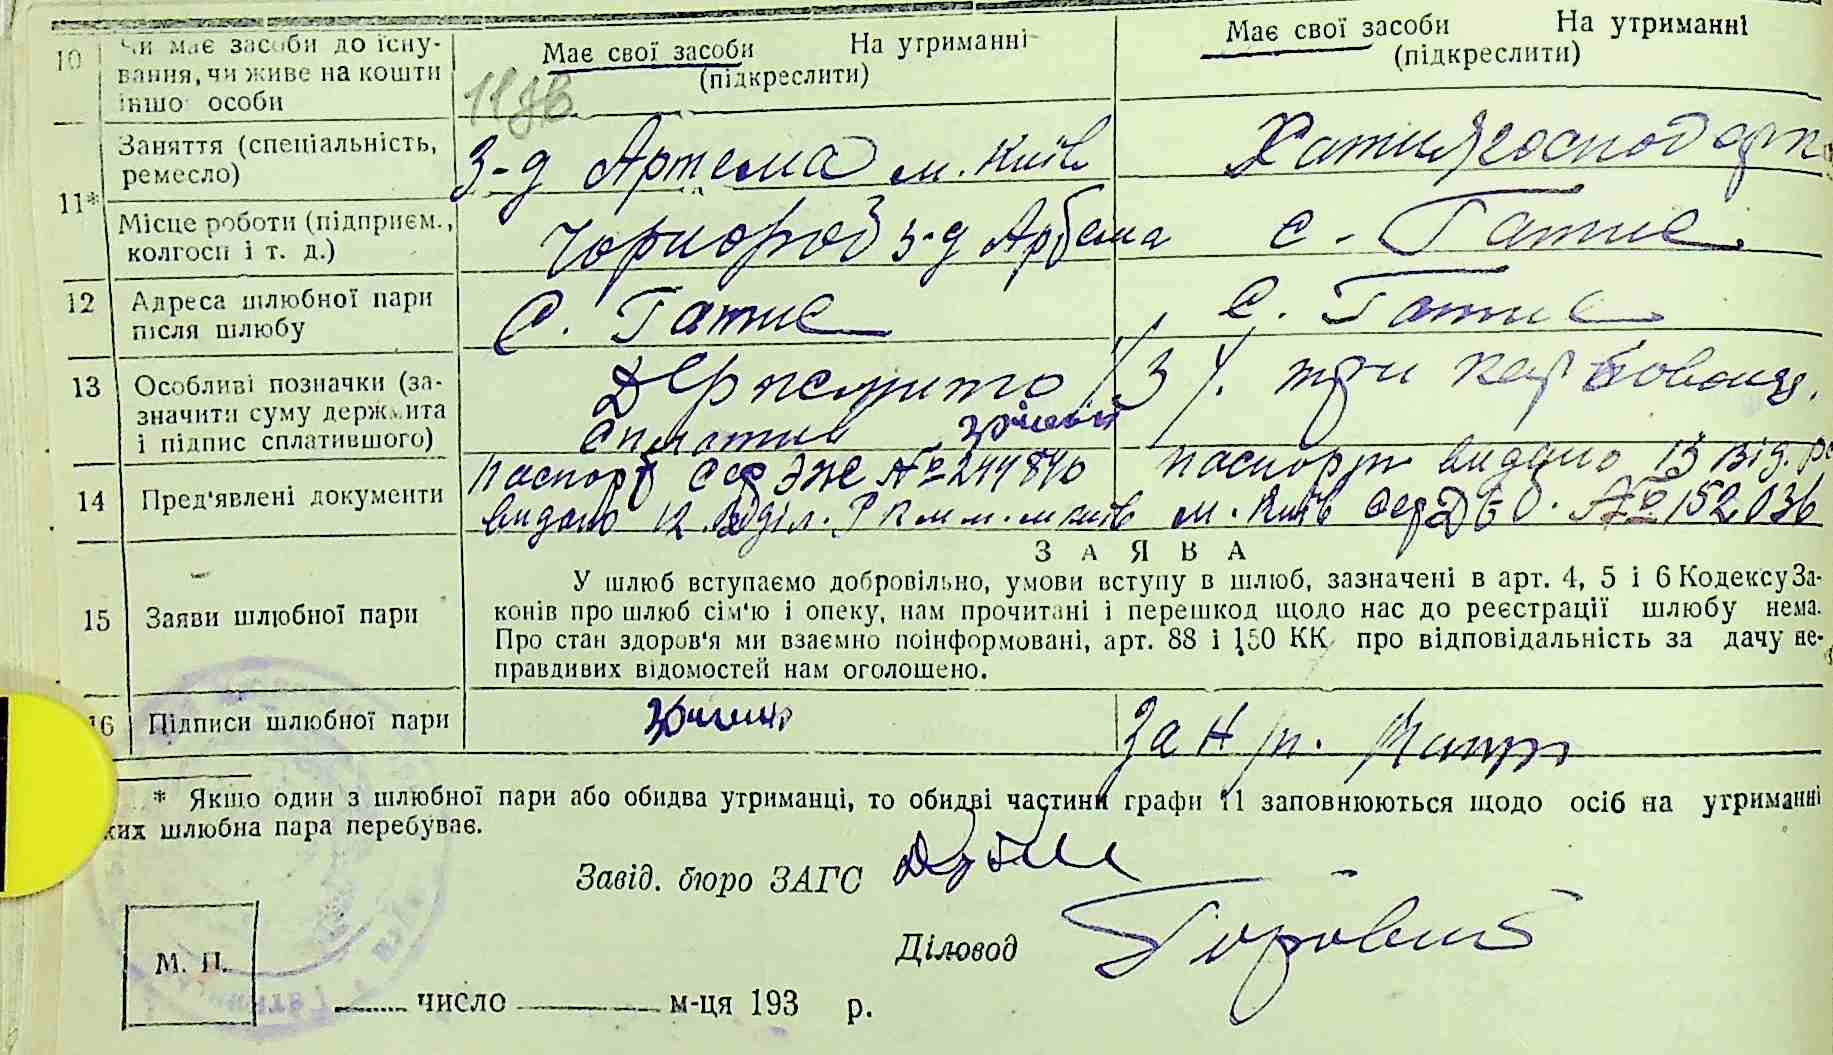 10 Чи має засоби до існу-
вання, чи живе на кошти
іншої особи
Має свої засоби На утриманні
(підкреслити)
Має свої засоби На утриманні
(підкреслити)
11* Заняття (спеціальність,
ремесло)
З-д Артема м. Київ
Хатня господарк
Місце роботи (підприєм.,
колгосп і т. д.)
Чорнороб з-д Артема
с. Гатне
12 Адреса шлюбної пари
після шлюбу
С. Гатне
С. Гатне
13 Особливі позначки (за-
значити суму держмита
і підпис сплатившого)
Держмито /3/. три карбованц.
сплатив
14 Пред'явлені документи
паспорт сер ЭЖ № 244840
видано 12 відділ. Р к м м. м київ
паспорт видано 13 від. рс
м. Київ сер № 152036
З А Я В А
15 Заяви шлюбної пари
У шлюб вступаємо добровільно, умови вступу в шлюб, зазначені в арт. 4, 5 і 6 Кодексу За-
конів про шлюб сім'ю і опеку, нам прочитані і перешкод щодо нас до реєстрації шлюбу нема.
Про стан здоров'я ми взаємно поінформовані, арт. 88 і 150 КК про відповідальність за дачу не-
правдивих відомостей нам оголошено.
16 Підписи шлюбної пари
За н/п.
* Якщо один з шлюбної пари або обидва утриманці, то обидві частини графи 11 заповнюються щодо осіб на утриманні
ких шлюбна пара перебуває.
Завід. бюро ЗАГС
Діловод
М. П.
число м-ця 193 р.